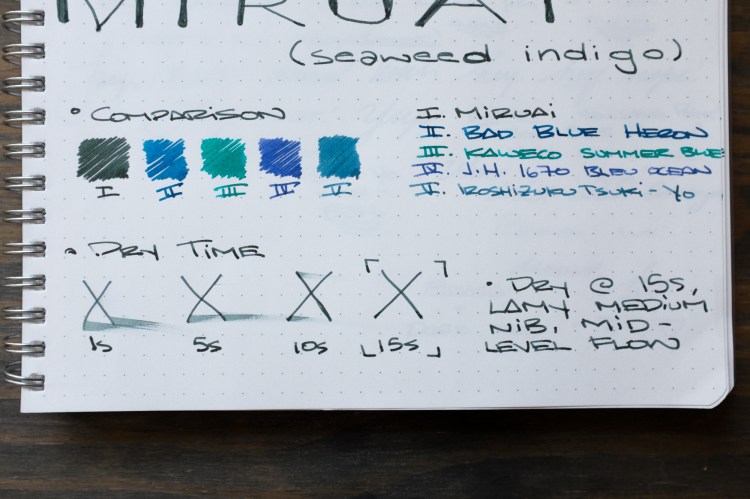 MIRUAI
(seaweed indigo)
• COMPARISON
I II III IV V
I. MIRUAI
II. BAD BLUE HERON
III. KAWECO SUMMER BLUE
IV. J.H. 1670 BLEU OCEAN
V. IROSHIZUKU TSUKI-YO
• DRY TIME
X X X X
1s 5s 10s 15s
• DRY @ 15s,
LAMY MEDIUM
NIB, MID-
LEVEL FLOW